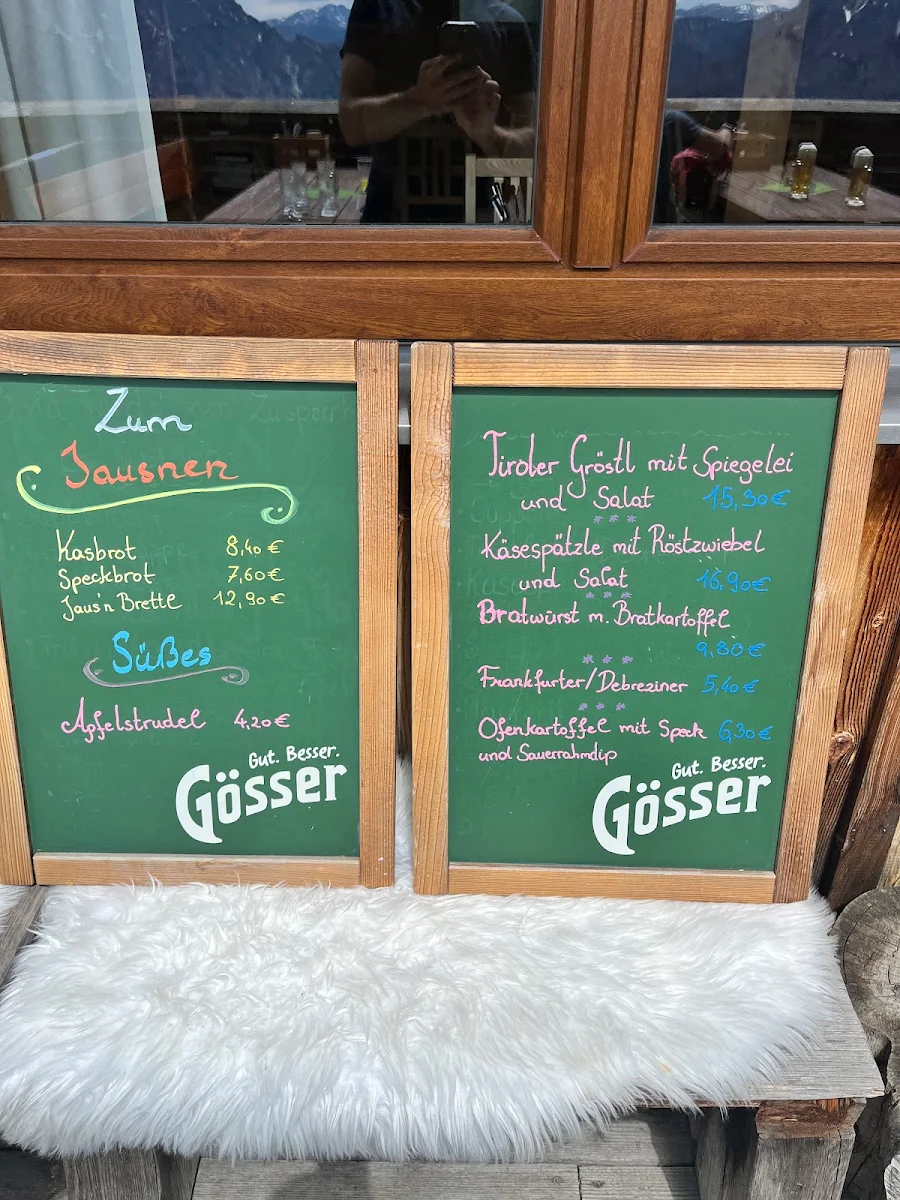 Zum
Jausnen
Kasbrot 8,40 €
Speckbrot 7,60 €
Jaus'n Brettl 12,90 €
Süßes
Apfelstrudel 4,20 €
Gut. Besser.
Gösser
Tiroler Gröstl mit Spiegelei
und Salat 15,30 €
***
Käsespätzle mit Röstzwiebel
und Salat 16,90 €
***
Bratwürst m. Bratkartoffel
9,80 €
***
Frankfurter/Debreziner 5,40 €
***
Ofenkartoffel mit Speck 6,30 €
und Sauerrahmdip
Gut. Besser.
Gösser